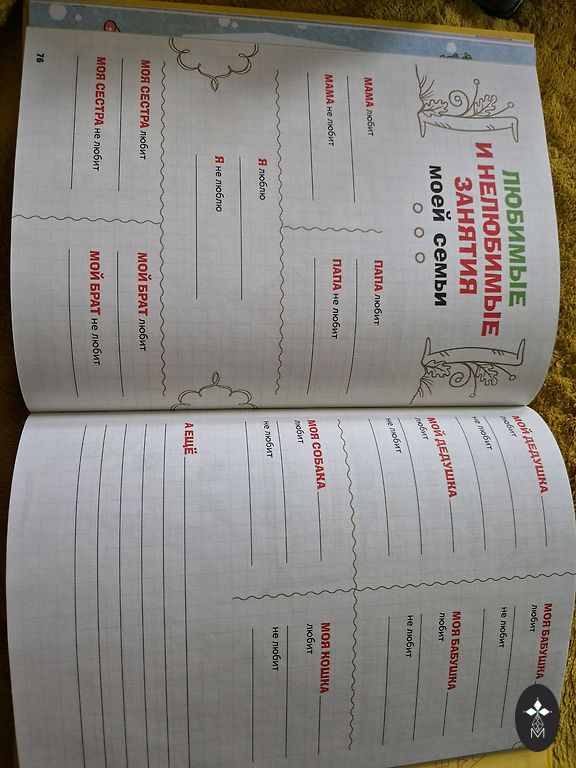 ЛЮБИМЫЕ
И НЕЛЮБИМЫЕ
ЗАНЯТИЯ
моей семьи
МАМА любит
МАМА не любит
ПАПА любит
ПАПА не любит
Я люблю
Я не люблю
МОЯ СЕСТРА любит
МОЯ СЕСТРА не любит
МОЙ БРАТ любит
МОЙ БРАТ не любит
76
МОЙ ДЕДУШКА
любит
не любит
МОЯ БАБУШКА
любит
не любит
МОЙ ДЕДУШКА
любит
не любит
МОЯ БАБУШКА
любит
не любит
МОЯ СОБАКА
любит
не любит
МОЯ КОШКА
любит
не любит
А ЕЩЁ
М